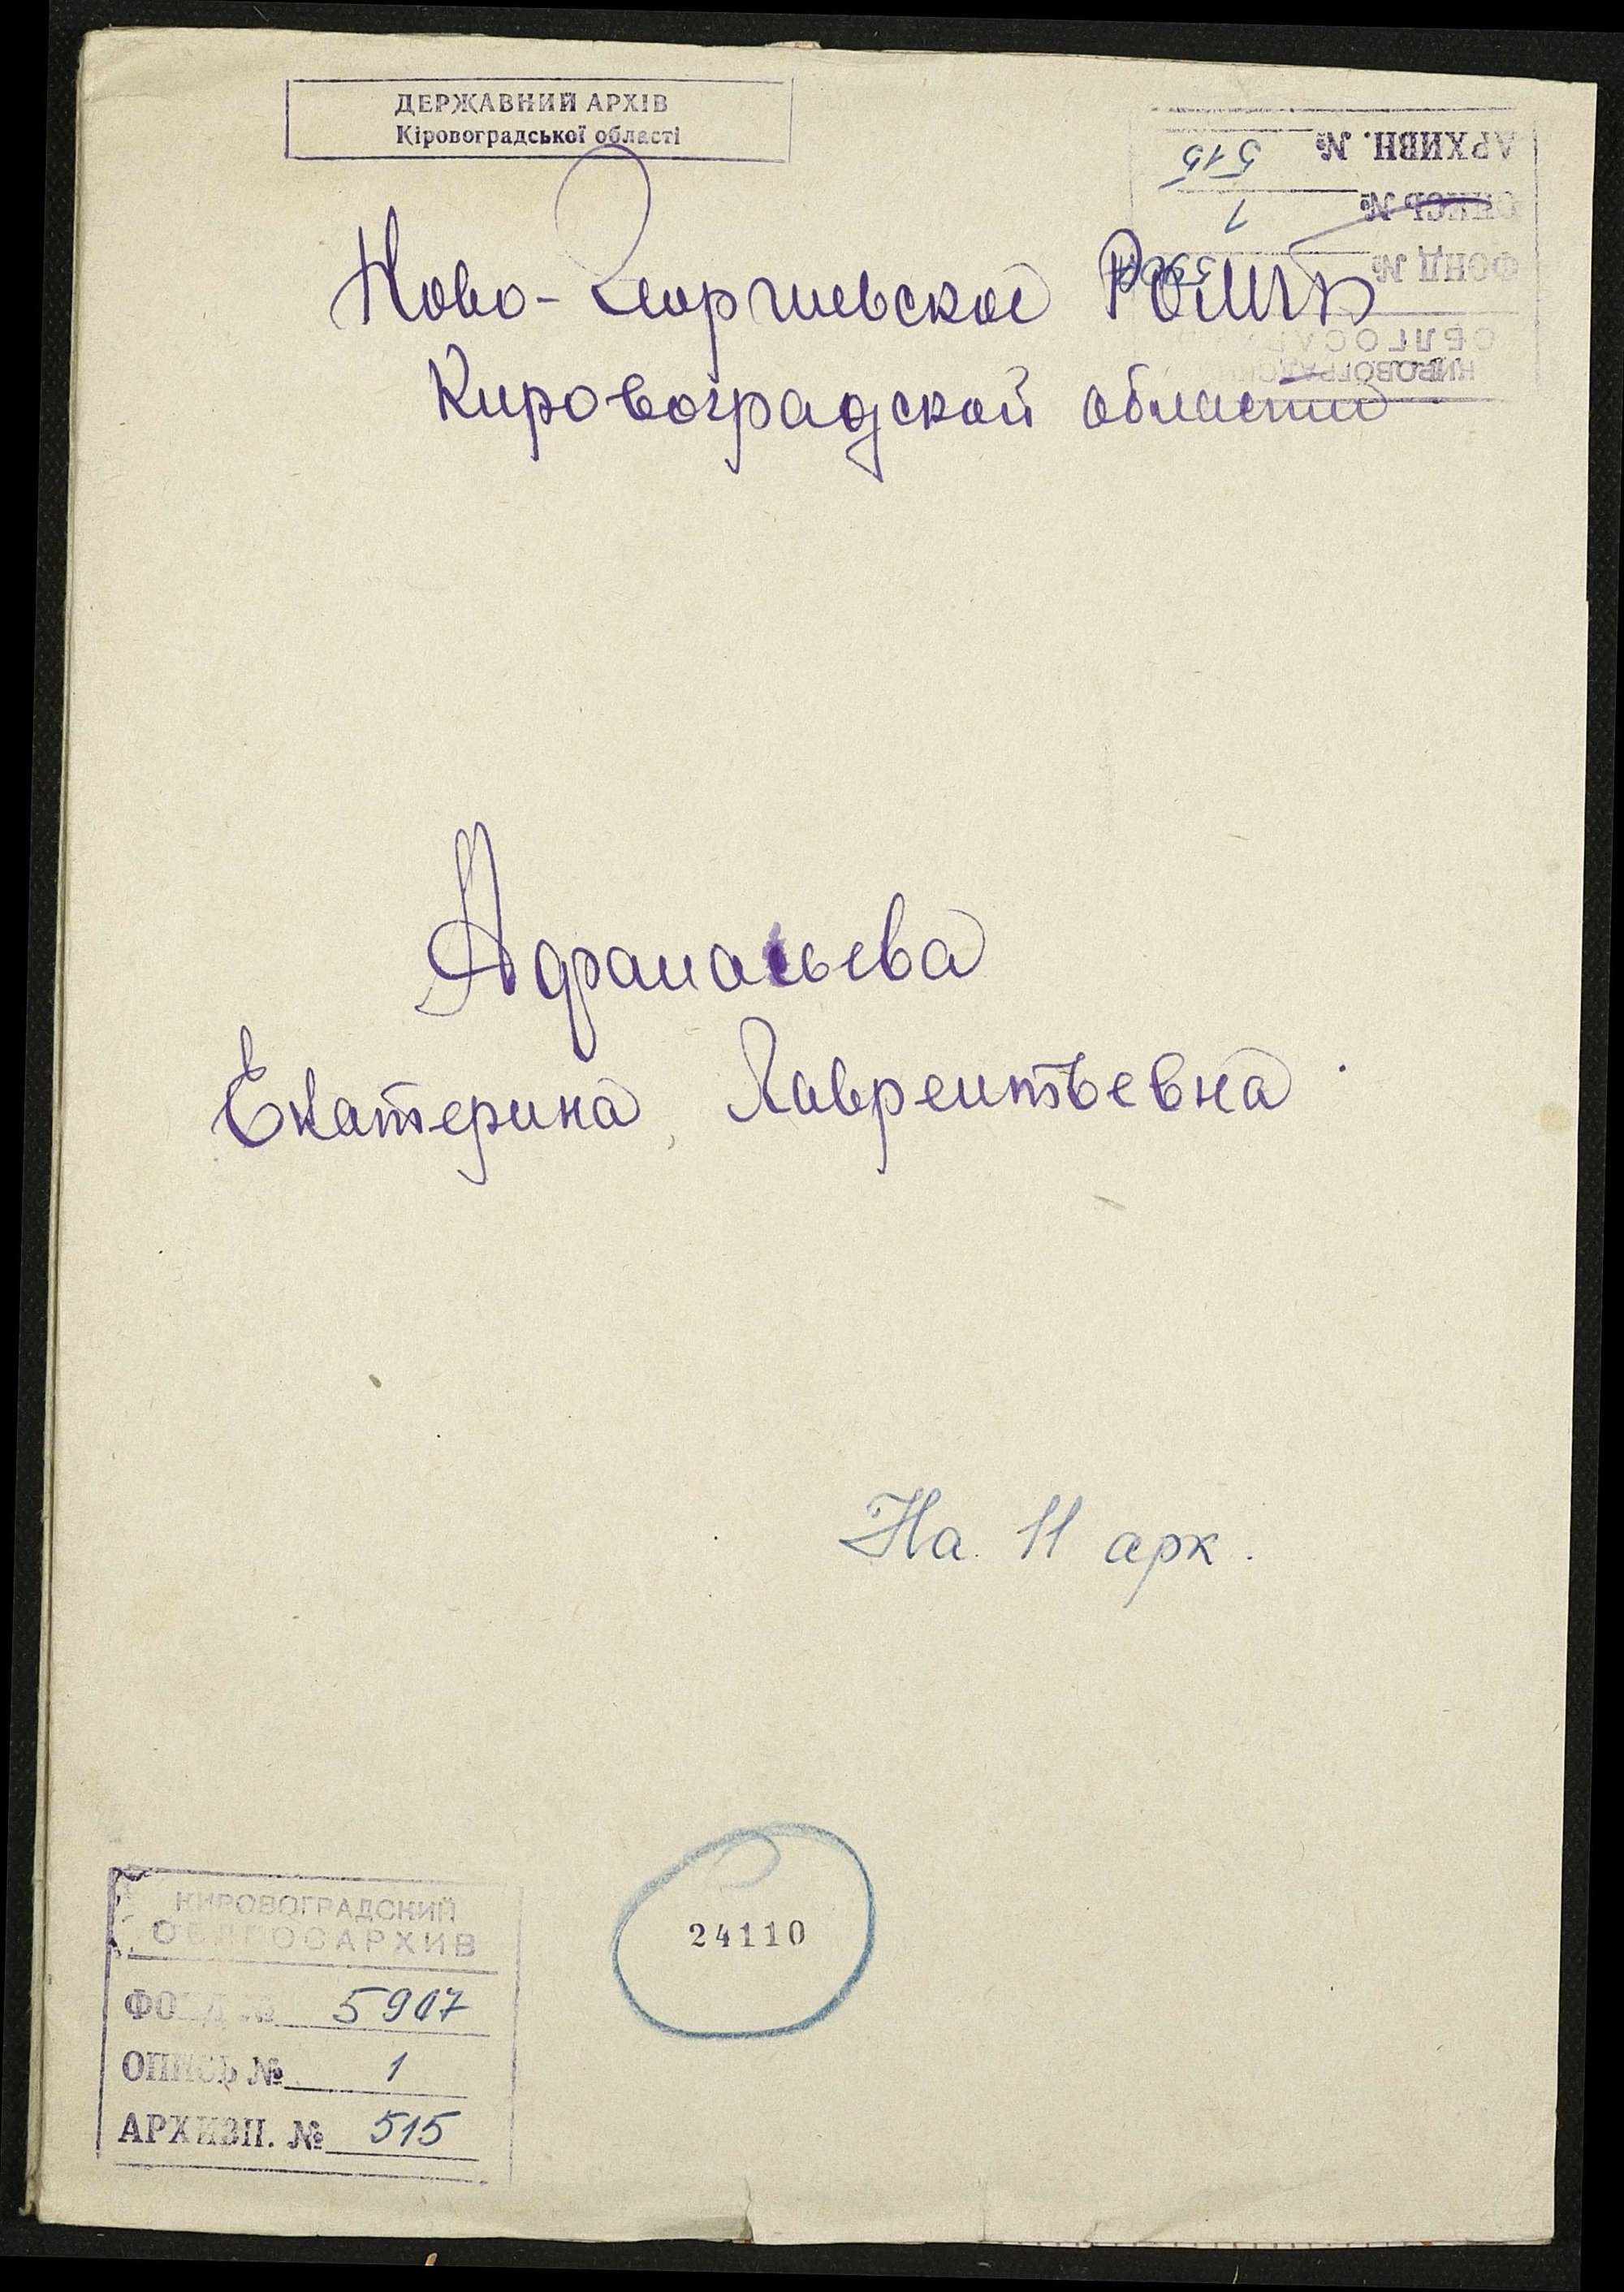 ДЕРЖАВНИЙ АРХІВ
Кіровоградської області
АРХИВН. № 515
ОПИСЬ № 1
ФОНД №
ОБЛГОСАР
КИРОВОГРАДСКИ
Ново-Георгиевское
Кировоградской области
Афанасьева
Екатерина Лаврентьевна
На 11 арк.
24110
КИРОВОГРАДСКИЙ
ОБЛГОСАРХИВ
ФОНД № 5907
ОПИСЬ № 1
АРХИВН. № 515